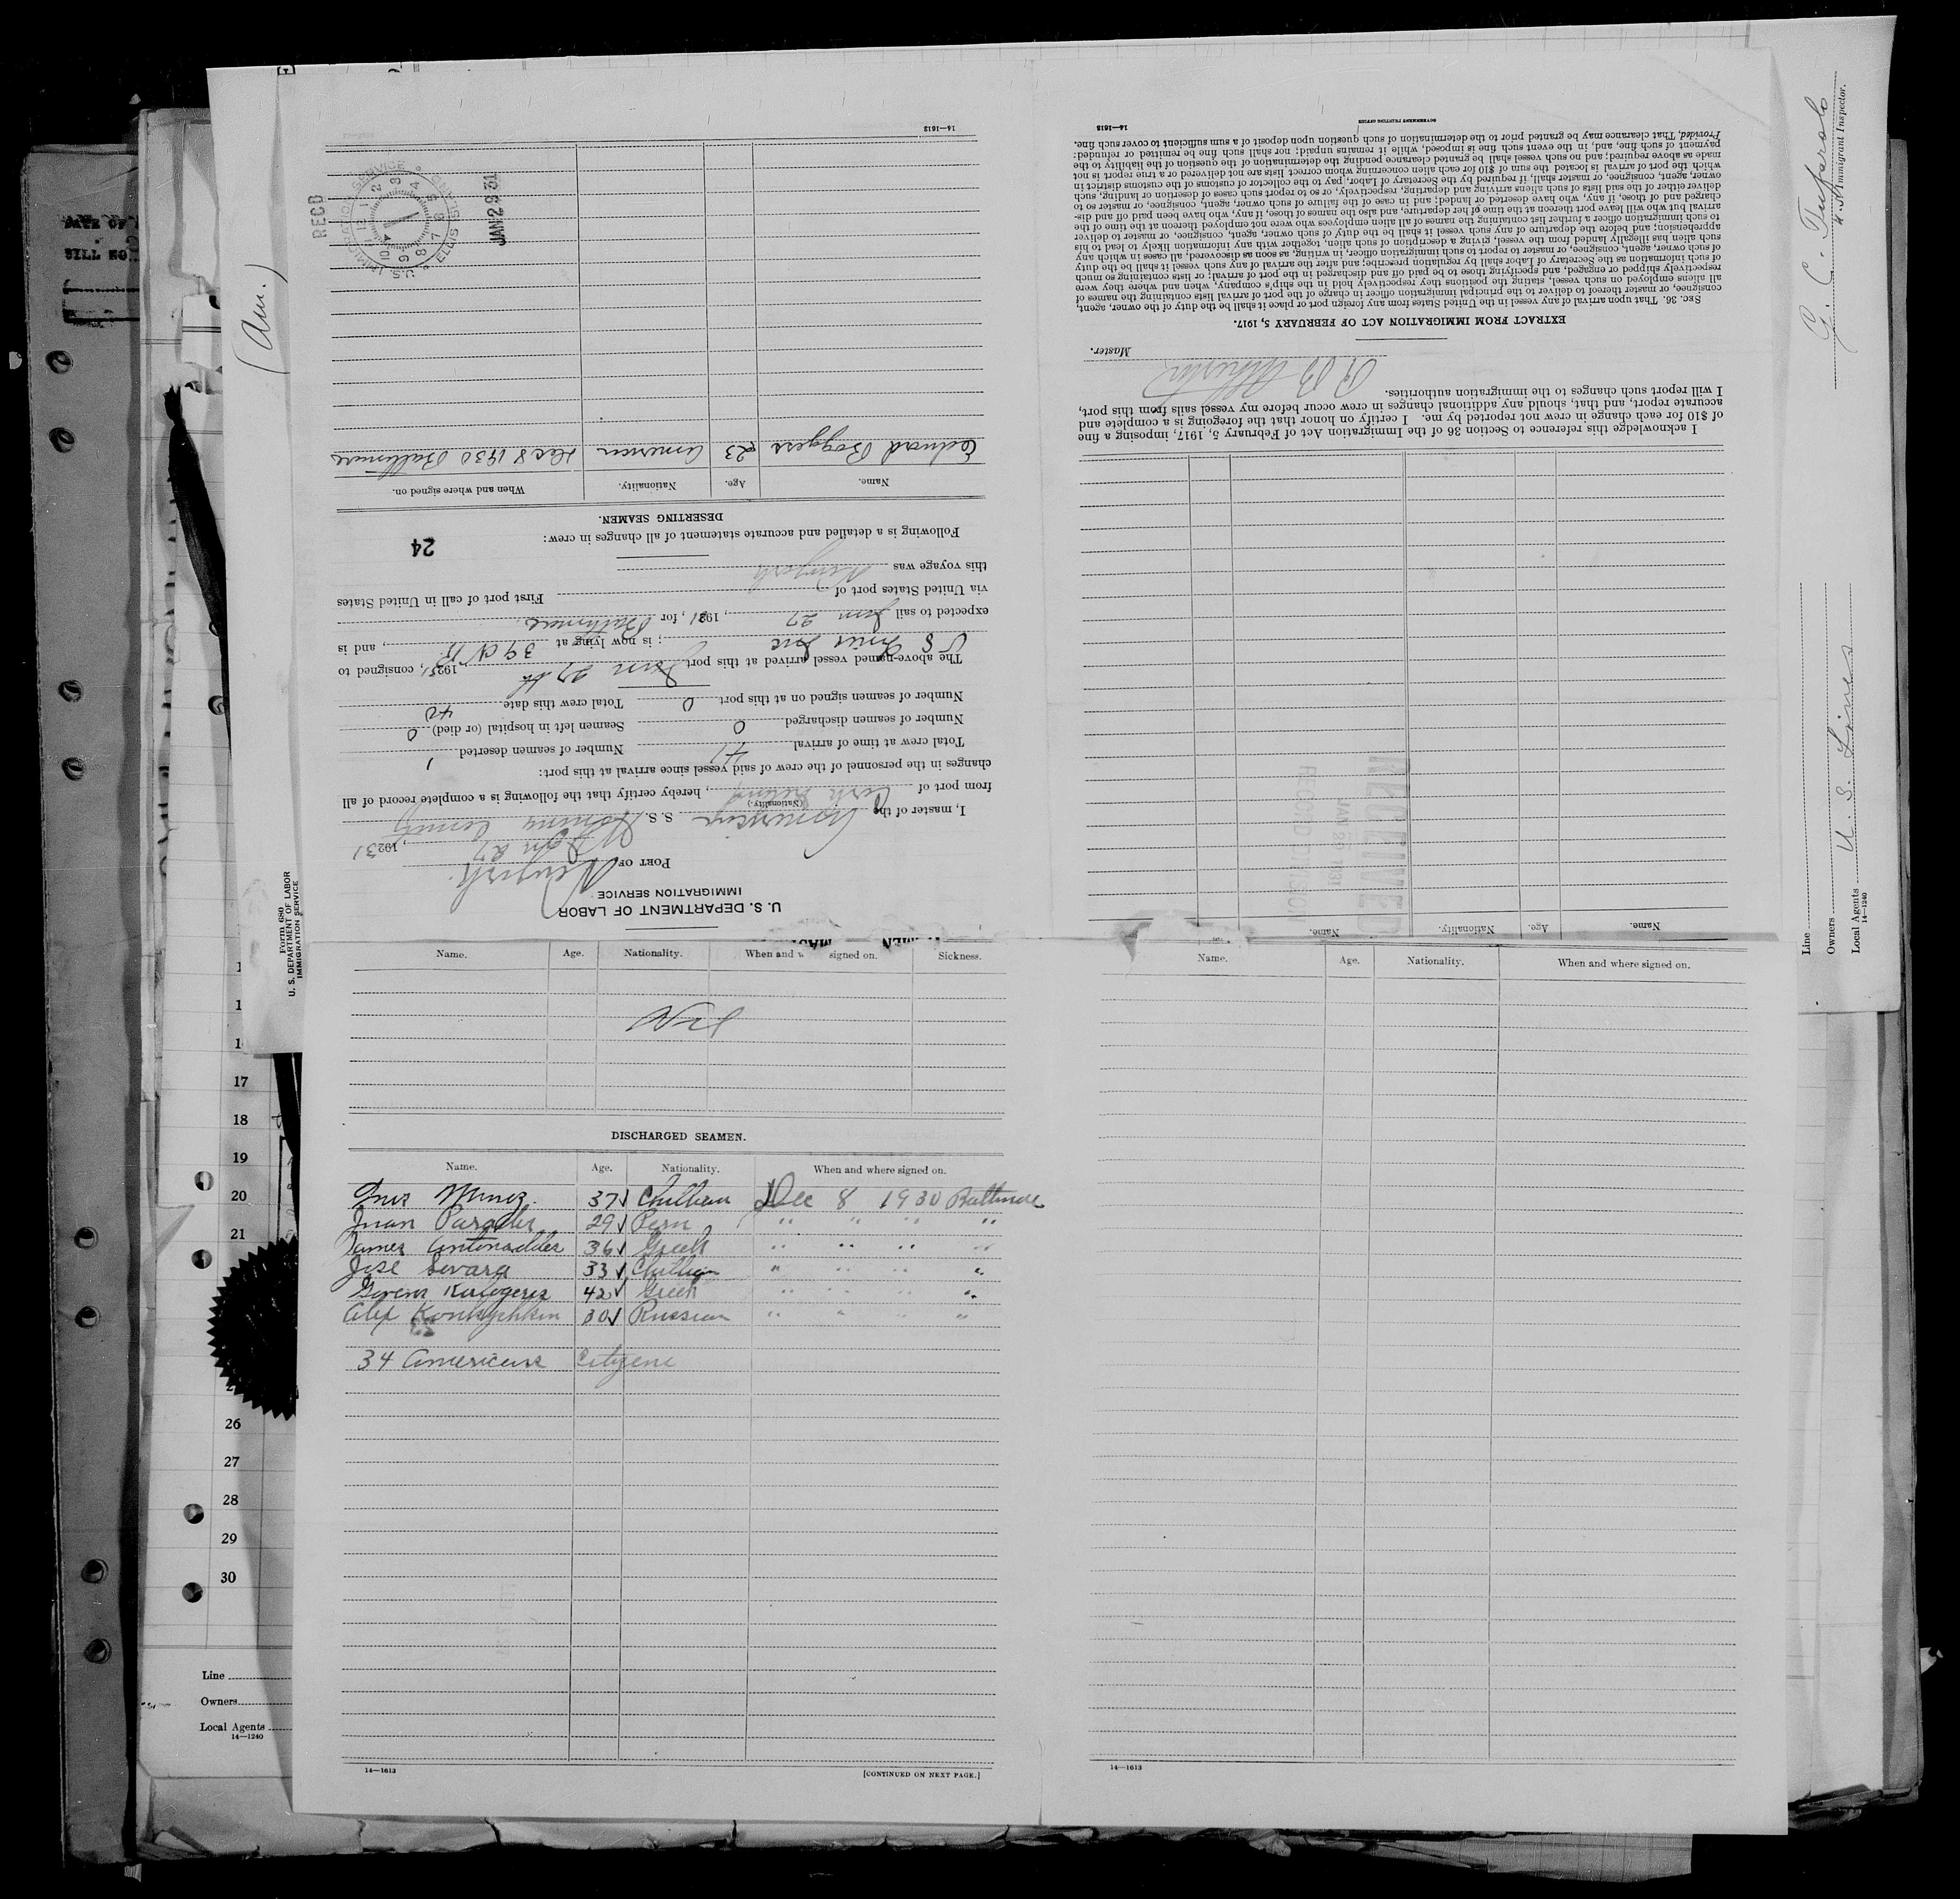 U. S. DEPARTMENT OF LABOR
IMMIGRATION SERVICE
PORT OF Newyork
Jan 27, 1931
I, master of the American S. S.
(Nationality.)
from port of , hereby certify that the following is a complete record of all
changes in the personnel of the crew of said vessel since arrival at this port:
Total crew at time of arrival 41 Number of seamen deserted 1
Number of seamen discharged 0 Seamen left in hospital (or died) 0
Number of seamen signed on at this port 0 Total crew this date 40
The above-named vessel arrived at this port Jan 27 th 1931, consigned to
U S Lines Inc ; is now lying at 39 N R , and is
expected to sail Jan 27, 1931, for Baltimore
via United States port of First port of call in United States
this voyage was Newyork
Following is a detailed and accurate statement of all changes in crew:
24
DESERTING SEAMEN.
Name. Age. Nationality. When and where signed on.
Edward Boggess 23 American Dec 8 1930 Baltimore
RECD
U.S. IMMIGRATION SERVICE ELLIS ISLAND
JAN 29 31
14—1613
Name. Age. Nationality. Name.
RECEIVED
JAN 29 1931
RECORD DIVISION
I acknowledge this reference to Section 36 of the Immigration Act of February 5, 1917, imposing a fine
of $10 for each change in crew not reported by me. I certify on honor that the foregoing is a complete and
accurate report, and that, should any additional changes in crew occur before my vessel sails from this port,
I will report such changes to the immigration authorities.
Master.
EXTRACT FROM IMMIGRATION ACT OF FEBRUARY 5, 1917.
SEC. 36. That upon arrival of any vessel in the United States from any foreign port or place it shall be the duty of the owner, agent,
consignee, or master thereof to deliver to the principal immigration officer in charge of the port of arrival lists containing the names of
all aliens employed on such vessel, stating the positions they respectively hold in the ship's company, when and where they were
respectively shipped or engaged, and specifying those to be paid off and discharged in the port of arrival; or lists containing so much
of such information as the Secretary of Labor shall by regulation prescribe; and after the arrival of any such vessel it shall be the duty
of such owner, agent, consignee, or master to report to such immigration officer, in writing, as soon as discovered, all cases in which any
such alien has illegally landed from the vessel, giving a description of such alien, together with any information likely to lead to his
apprehension; and before the departure of any such vessel it shall be the duty of such owner, agent, consignee, or master to deliver
to such immigration officer a further list containing the names of all alien employees who were not employed thereon at the time of the
arrival but who will leave port thereon at the time of her departure, and also the names of those, if any, who have been paid off and dis-
charged and of those, if any, who have deserted or landed; and in case of the failure of such owner, agent, consignee, or master so to
deliver either of the said lists of such aliens arriving and departing, respectively, or so to report such cases of desertion or landing, such
owner, agent, consignee, or master shall, if required by the Secretary of Labor, pay to the collector of customs of the customs district in
which the port of arrival is located the sum of $10 for each alien concerning whom correct lists are not delivered or a true report is not
made as above required; and no such vessel shall be granted clearance pending the determination of the question of the liability to the
payment of such fine, and, in the event such fine is imposed, while it remains unpaid; nor shall such fine be remitted or refunded:
Provided, That clearance may be granted prior to the determination of such question upon deposit of a sum sufficient to cover such fine.
14—1613 GOVERNMENT PRINTING OFFICE
Name. Age. Nationality. When and signed on. Sickness.
Nil
DISCHARGED SEAMEN.
Name. Age. Nationality. When and where signed on.
37 Chilean Dec 8 1930 Baltimore
Juan 29 Peru " " " "
James 36 Greek " " " "
Jose 33 Chilean " " " "
42 Greek " " " "
Alex 30 Russian " " " "
34 Americans Citizens
14—1613 [CONTINUED ON NEXT PAGE.]
Name. Age. Nationality. When and where signed on.
14—1613
(Am.)
Form 680
U. S. DEPARTMENT OF LABOR
IMMIGRATION SERVICE
Immigrant Inspector.
Line
Owners U. S. Lines
Local Agents
14—1240
17
18
19
20
21
26
27
28
29
30
Line
Owners
Local Agents
14—1240